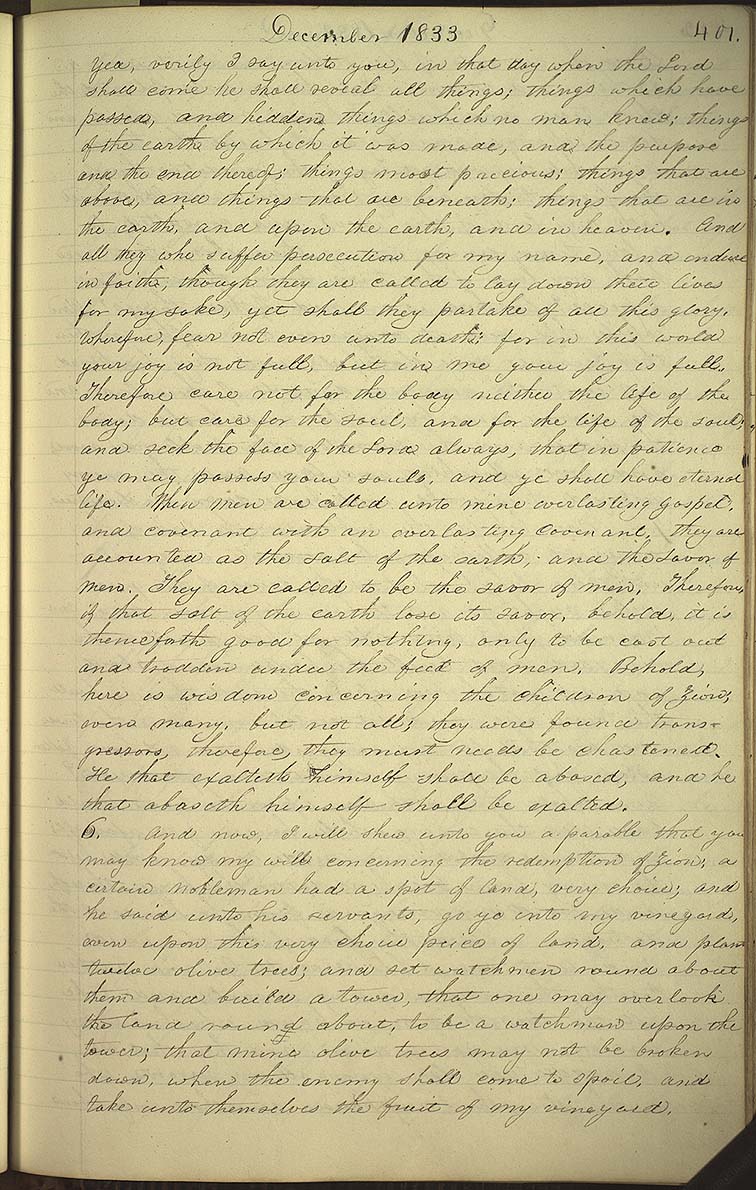 December 1833
401.
Yea, verily I say unto you, in that day when the Lord
shall come he shall reveal all things; things which have
passed, and hidden things which no man knew; things
of the earth by which it was made, and the purpose
and the end thereof; things most precious; things that are
above, and things that are beneath; things that are in
the earth, and upon the earth, and in heaven. And
all they who suffer persecution for my name, and endure
in faith, though they are called to lay down their lives
for my sake, yet shall they partake of all this glory.
Wherefore, fear not even unto death; for in this world
your joy is not full, but in me your joy is full.
Therefore care not for the body neither the life of the
body; but care for the soul, and for the life of the soul;
and seek the face of the Lord always, that in patience
ye may possess your souls, and ye shall have eternal
life. When men are called unto mine everlasting gospel,
and covenant with an everlasting covenant, they are
accounted as the salt of the earth, and the savor of
men. They are called to be the savor of men. Therefore,
if that salt of the earth lose its savor, behold, it is
thenceforth good for nothing, only to be cast out
and trodden under the feet of men. Behold,
here is wisdom concerning the children of Zion;
even many, but not all; they were found trans-
gressors, therefore, they must needs be chastened.
He that exalteth himself shall be abased, and he
that abaseth himself shall be exalted.
6. And now, I will shew unto you a parable that you
may know my will concerning the redemption of Zion; a
certain nobleman had a spot of land, very choice; and
he said unto his servants, go ye into my vineyard,
even upon this very choice peice of land, and plant
twelve olive trees; and set watchmen round about
them and build a tower, that one may overlook
the land round about, to be a watchman upon the
tower; that mine olive trees may not be broken
down, when the enemy shall come to spoil, and
take unto themselves the fruit of my vineyard.